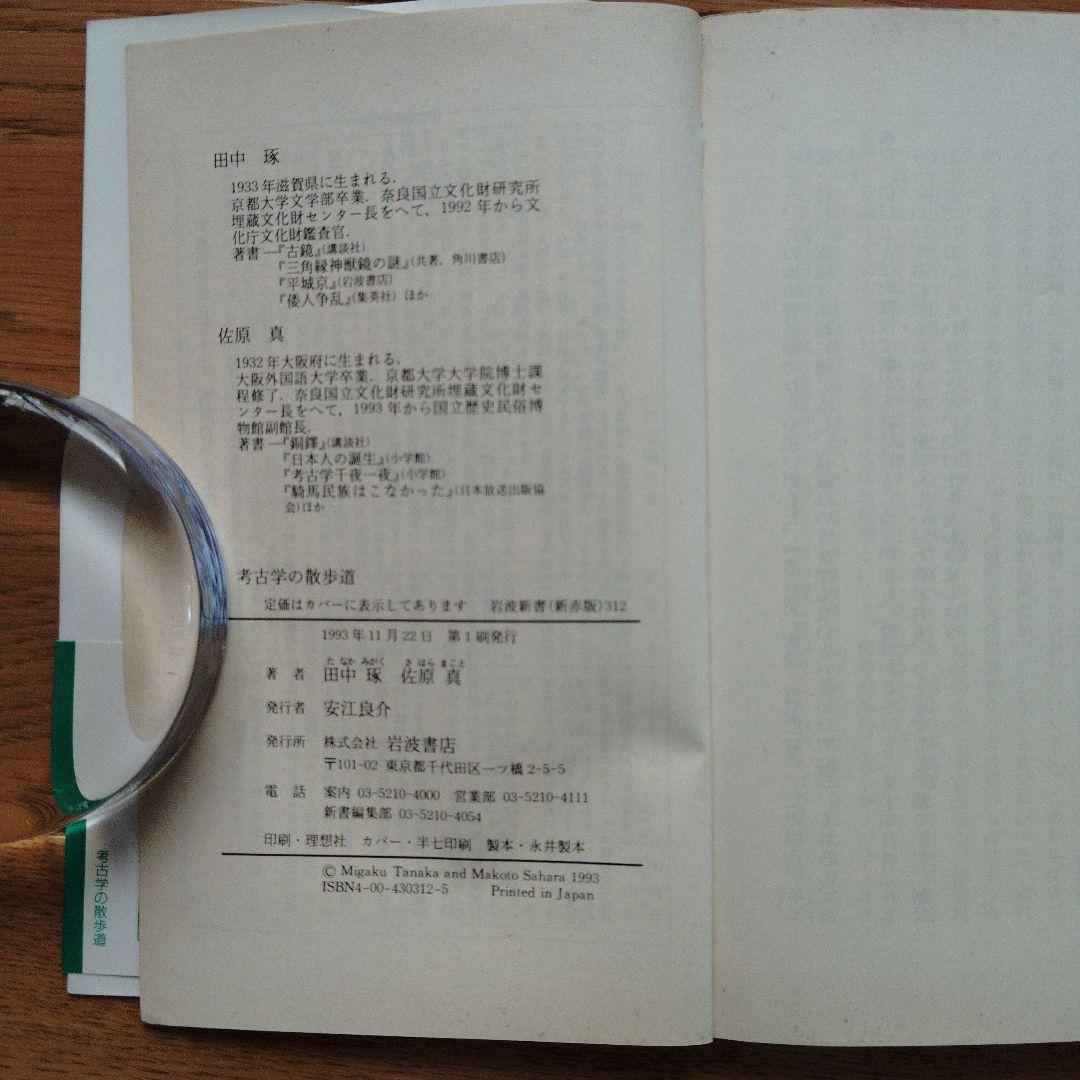 田中　琢
1933年滋賀県に生まれる．
京都大学文学部卒業．奈良国立文化財研究所
埋蔵文化財センター長をへて，1992年から文
化庁文化財鑑査官．
著書―『古鏡』(講談社)
『三角縁神獣鏡の謎』(共著，角川書店)
『平城京』(岩波書店)
『倭人争乱』(集英社) ほか
佐原　真
1932年大阪府に生まれる．
大阪外国語大学卒業．京都大学大学院博士課
程修了．奈良国立文化財研究所埋蔵文化財セ
ンター長をへて，1993年から国立歴史民俗博
物館副館長．
著書―『銅鐸』(講談社)
『日本人の誕生』(小学館)
『考古学千夜一夜』(小学館)
『騎馬民族はこなかった』(日本放送出版協
会)ほか
考古学の散歩道
定価はカバーに表示してあります　岩波新書(新赤版)312
1993年11月22日　第1刷発行
た なか みがく　さ はら まこと
著　者　田中 琢　佐原 真
発行者　安江良介
発行所　株式会社 岩波書店
〒101-02 東京都千代田区一ツ橋 2-5-5
電　話　案内 03-5210-4000　営業部 03-5210-4111
新書編集部 03-5210-4054
印刷・理想社　カバー・半七印刷　製本・永井製本
© Migaku Tanaka and Makoto Sahara 1993
ISBN4-00-430312-5　Printed in Japan
考古学の散歩道